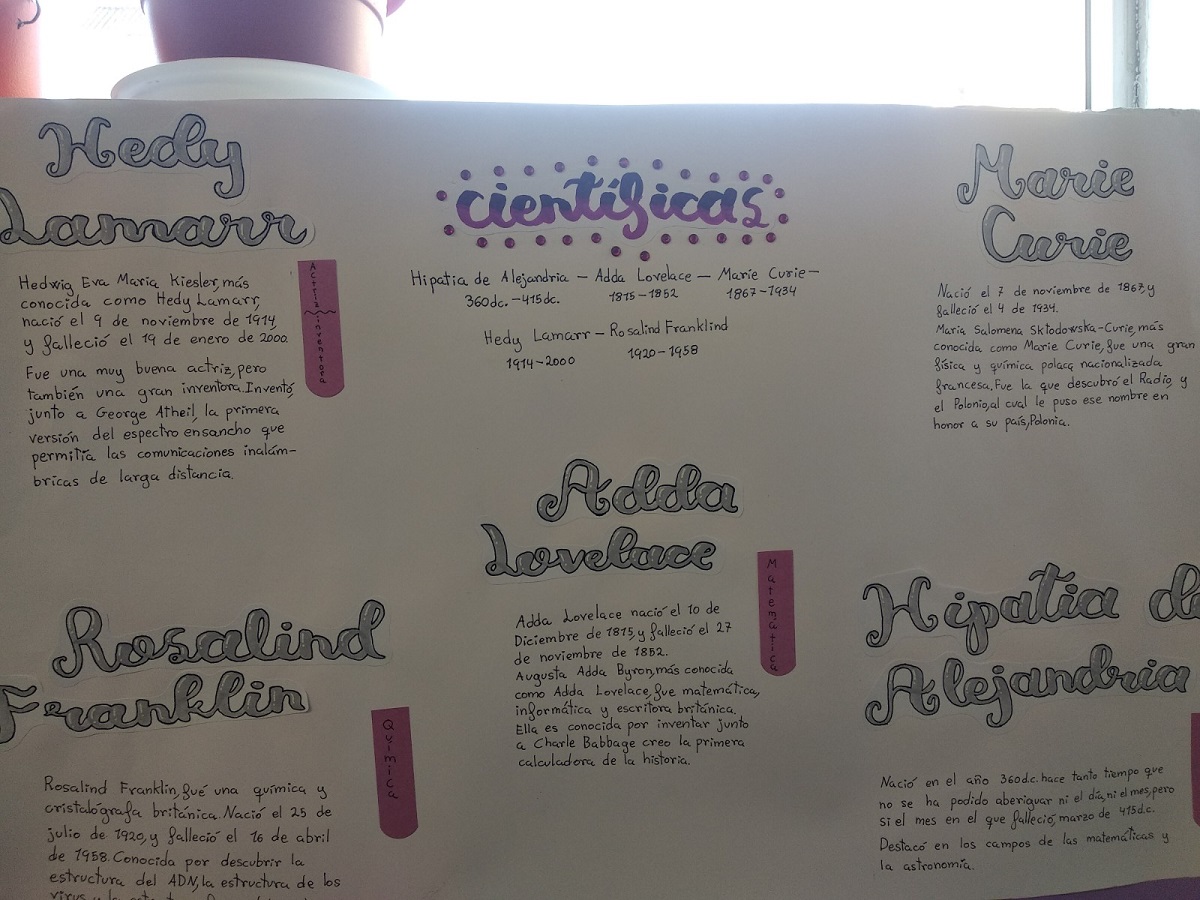 Hedy
Lamarr
Hedwig Eva Maria Kiesler, más
conocida como Hedy Lamarr,
nació el 9 de noviembre de 1914,
y falleció el 19 de enero de 2000.
Fue una muy buena actriz, pero
también una gran inventora. Inventó,
junto a George Atheil, la primera
versión del espectro ensancho que
permitía las comunicaciones inalám-
bricas de larga distancia.
Actriz inventora
científicas
Hipatia de Alejandria — Adda Lovelace — Marie Curie —
360dc. — 415dc. 1815 - 1852 1867 - 1934
Hedy Lamarr — Rosalind Franklind
1914 - 2000 1920 - 1958
Marie
Curie
Nació el 7 de noviembre de 1867, y
falleció el 4 de 1934.
Maria Salomena Skłodowska-Curie, más
conocida como Marie Curie, fue una gran
física y química polaca, nacionalizada
francesa. Fue la que descubró el Radio, y
el Polonio, al cual le puso ese nombre en
honor a su país, Polonia.
Rosalind
Franklin
Rosalind Franklin, fué una química y
cristalógrafa británica. Nació el 25 de
julio de 1920, y falleció el 16 de abril
de 1958. Conocida por descubrir la
estructura del ADN, la estructura de los
virus y la
Química
Adda
Lovelace
Adda Lovelace nació el 10 de
Diciembre de 1815, y falleció el 27
de noviembre de 1852.
Augusta Adda Byron, más conocida
como Adda Lovelace, fue matemática,
informática y escritora británica.
Ella es conocida por inventar junto
a Charle Babbage creo la primera
calculadora de la historia.
Matemática
Hipatia de
Alejandria
Nació en el año 360d.c. hace tanto tiempo que
no se ha podido aberiguar ni el día, ni el mes, pero
si el mes en el que falleció, marzo de 415d.c.
Destacó en los campos de las matemáticas y
la astronomía.